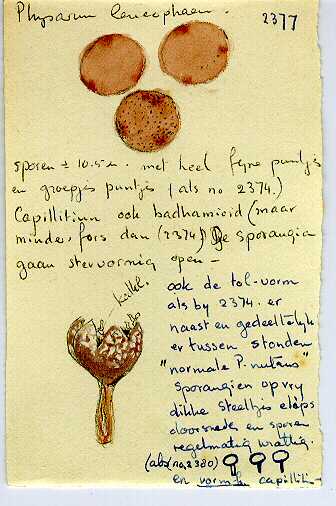 Physarum leucophaeum.
2377
sporen ± 10.5 µ. met heel fijne puntjes
en groepjes puntjes (als no 2374.)
Capillitium ook badhamioid (maar
minder fors dan (2374) De sporangia
gaan stervormig open —
ook de tol-vorm
als by 2374. er
naast en gedeeltelijk
er tussen stonden
"normale P. nutans"
sporangien op vry
dikke steeltjes
doorsneden en sporen
regelmatig wrattig.
(als no 2380)
en vorm capilliti-